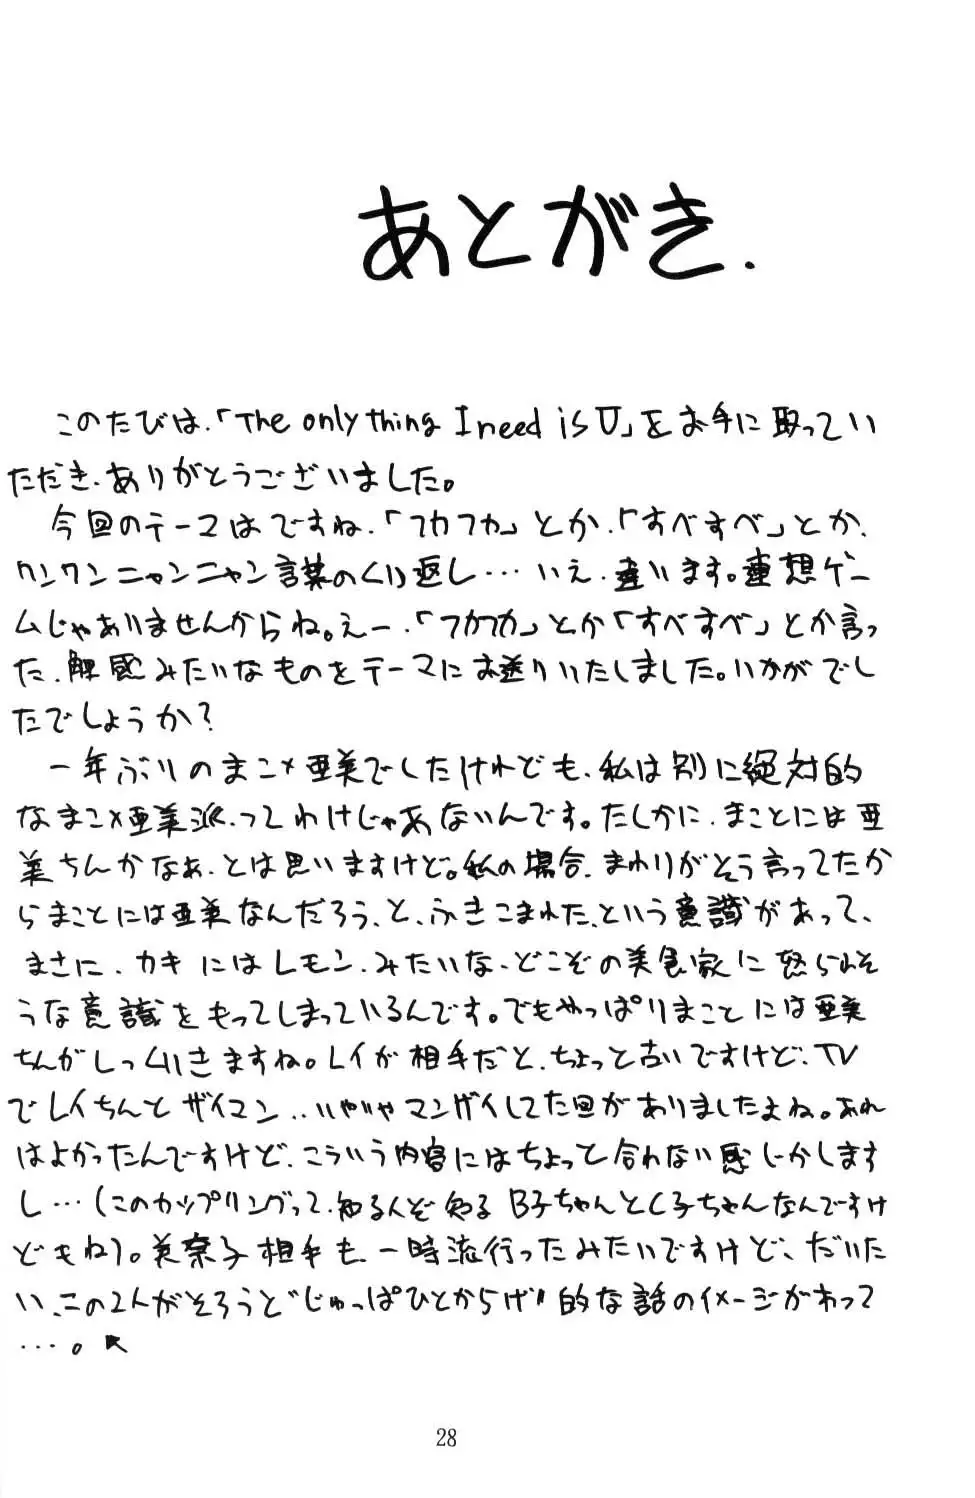 あとがき.
このたびは.「The only thing I need is U」をお手に取ってい
ただき、ありがとうございました。
今回のテーマはですね.「フカフカ」とか.「すべすべ」とか、
ワンワンニャンニャン言葉のくり返し…いえ、違います。連想ゲー
ムじゃありませんからね。えー.「フカフカ」とか「すべすべ」とか言っ
た、触感みたいなものをテーマにお送りいたしました。いかがでし
たでしょうか?
一年ぶりのまこ×亜美でしたけれども、私は別に絶対的
なまこ×亜美派、ってわけじゃあないんです。たしかに、まことには亜
美ちんかなぁ、とは思いますけど。私の場合、まわりがそう言ってたか
らまことには亜美なんだろう、と、ふきこまれた、という意識があって、
まさに、カキにはレモン、みたいな、どこぞの美食家に怒られそ
うな意識をもってしまっているんです。でもやっぱりまことには亜美
ちんがしっくりきますね。レイが相手だと、ちょっと古いですけど、TV
でレイちんとザイマン..いやいやマンザイしてた回がありましたよね。あれ
はよかったんですけど、こういう内容にはちょっと合わない感じがします
し…(このカップリングって、知る人ぞ知るB子ちゃんとC子ちゃんなんですけ
どもね)。美奈子相手も、一時流行ったみたいですけど、だいた
い、この2人がそろうと"じゅっぱひとからげ"的な話のイメージがわって
…。↖
28